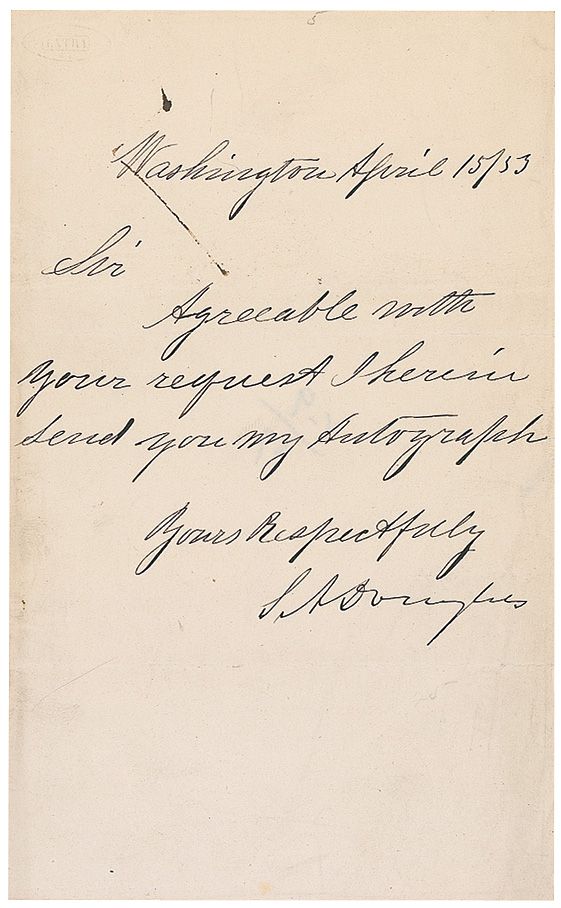 Washington April 15/53
Sir
Agreeable with
your request I herein
send you my Autograph
Yours Respectfuly
S A Douglas